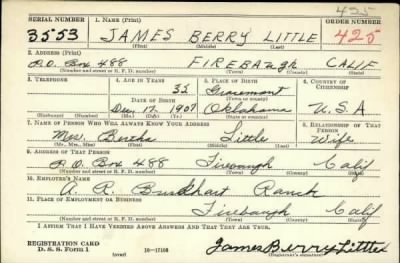 425
SERIAL NUMBER 1. NAME (Print) ORDER NUMBER
3553 JAMES BERRY LITTLE 425
(First) (Middle) (Last)
2. ADDRESS (Print)
P.O. Box 488 FIREBAUGH CALIF
(Number and street or R. F. D. number) (Town) (County) (State)
3. TELEPHONE 4. AGE IN YEARS 5. PLACE OF BIRTH 6. COUNTRY OF CITIZENSHIP
32 Gracemont
DATE OF BIRTH (Town or county)
Dec. 17. 1907 Oklahoma U.S.A
(Exchange) (Number) (Mo.) (Day) (Yr.) (State or country)
7. NAME OF PERSON WHO WILL ALWAYS KNOW YOUR ADDRESS 8. RELATIONSHIP OF THAT PERSON
Mrs. Bertha Little Wife
(Mr., Mrs., Miss) (First) (Middle) (Last)
9. ADDRESS OF THAT PERSON
P.O. Box 488 Firebaugh Calif
(Number and street or R. F. D. number) (Town) (County) (State)
10. EMPLOYER'S NAME
A. R. Burkhart Ranch
11. PLACE OF EMPLOYMENT OR BUSINESS
Firebaugh Calif
(Number and street or R. F. D. number) (Town) (County) (State)
I AFFIRM THAT I HAVE VERIFIED ABOVE ANSWERS AND THAT THEY ARE TRUE.
REGISTRATION CARD
D. S. S. Form 1 (over) 16-17105 James Berry Little
(Registrant's signature)